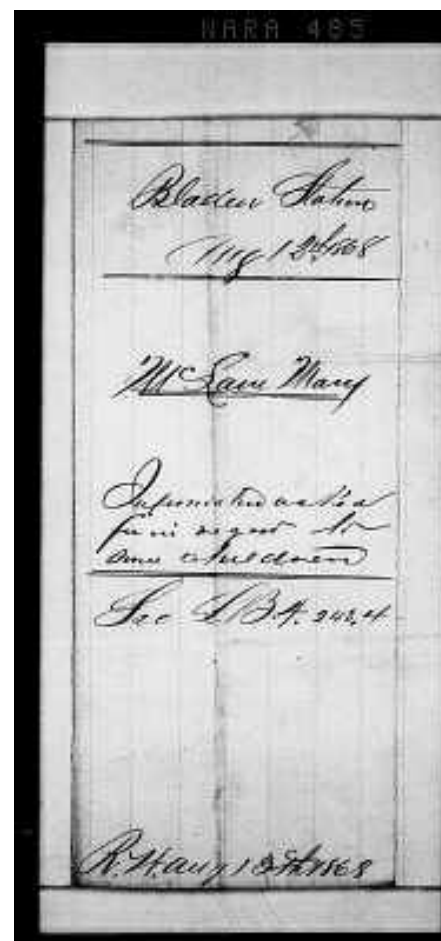 NARA 485
Bladen Station
Aug 12th 1868
McLain Mary
Information asked
for in regard to
some children
See L.B. 4. 243,4
R. H. Aug 13th 1868